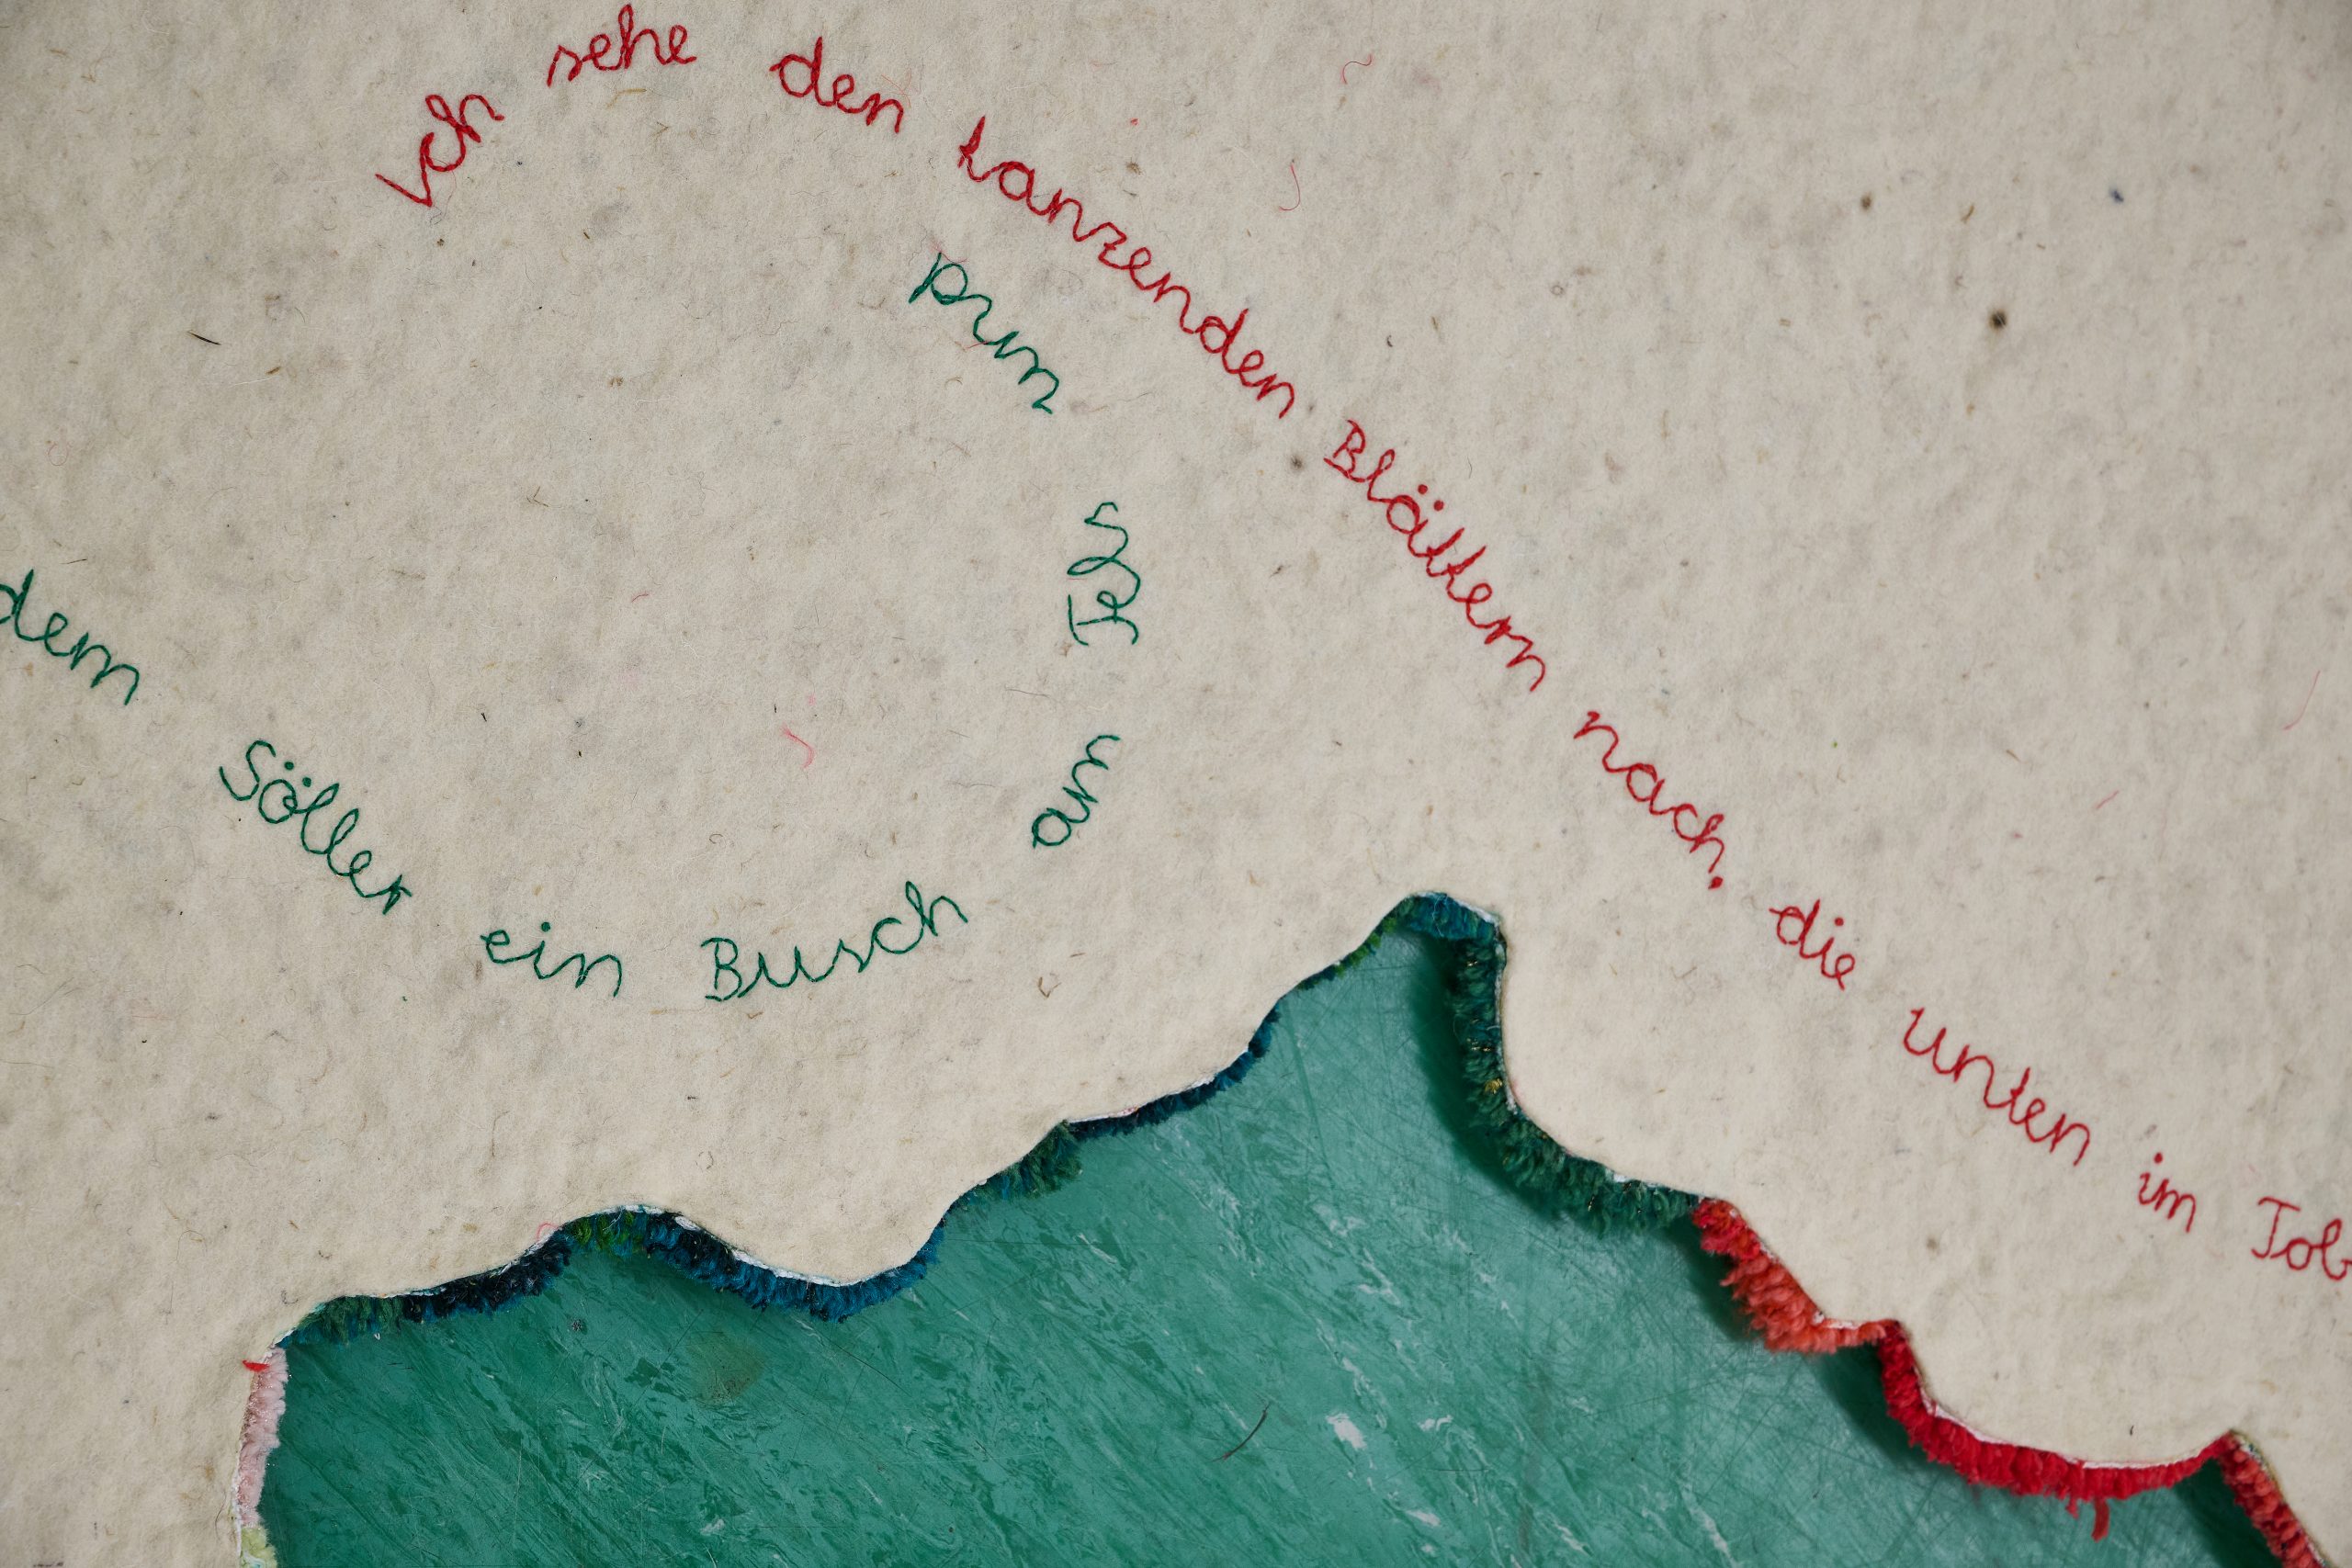 Ich sehe den tanzenden Blättern nach. die unten im Tob
dem Söller ein Busch am Fels